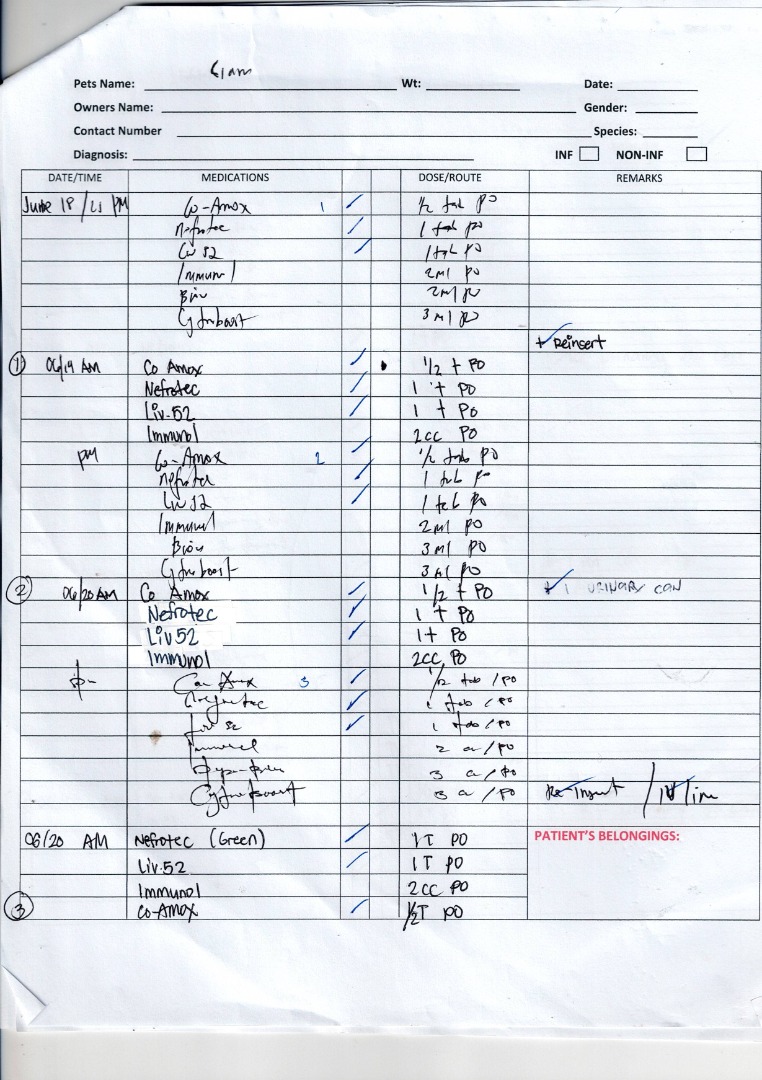 Pets Name: Wt: Date:
Owners Name: Gender:
Contact Number Species:
Diagnosis: INF NON-INF
DATE/TIME MEDICATIONS DOSE/ROUTE REMARKS
June 18 / PM Co-Amox 1 ½ tab po
Nefrotec 1 tab po
Liv 52 1 tab po
Immunol 2ml po
2ml po
3ml po
+ Reinsert
1 06/19 AM Co Amox 1/2 t PO
Nefrotec 1 t PO
Liv-52 1 t PO
Immunol 2cc PO
pm Co-Amox 2 ½ tab po
Nefrotec 1 tab po
Liv 52 1 tab po
Immunol 2ml po
3ml po
3ml po
2 06/20 AM Co Amox 1/2 t PO + 1 URINARY CAN
Nefrotec 1 t PO
Liv52 1 t PO
Immunol 2CC PO
Amox 3 1/2 tab / PO
1 tab / PO
Liv 52 1 tab / PO
2 / PO
3 / PO
3 / PO Re-Insert / IV line
06/20 AM Nefrotec (Green) 1T PO PATIENT'S BELONGINGS:
Liv.52 1T PO
Immunol 2CC PO
3 Co-Amox ½T PO